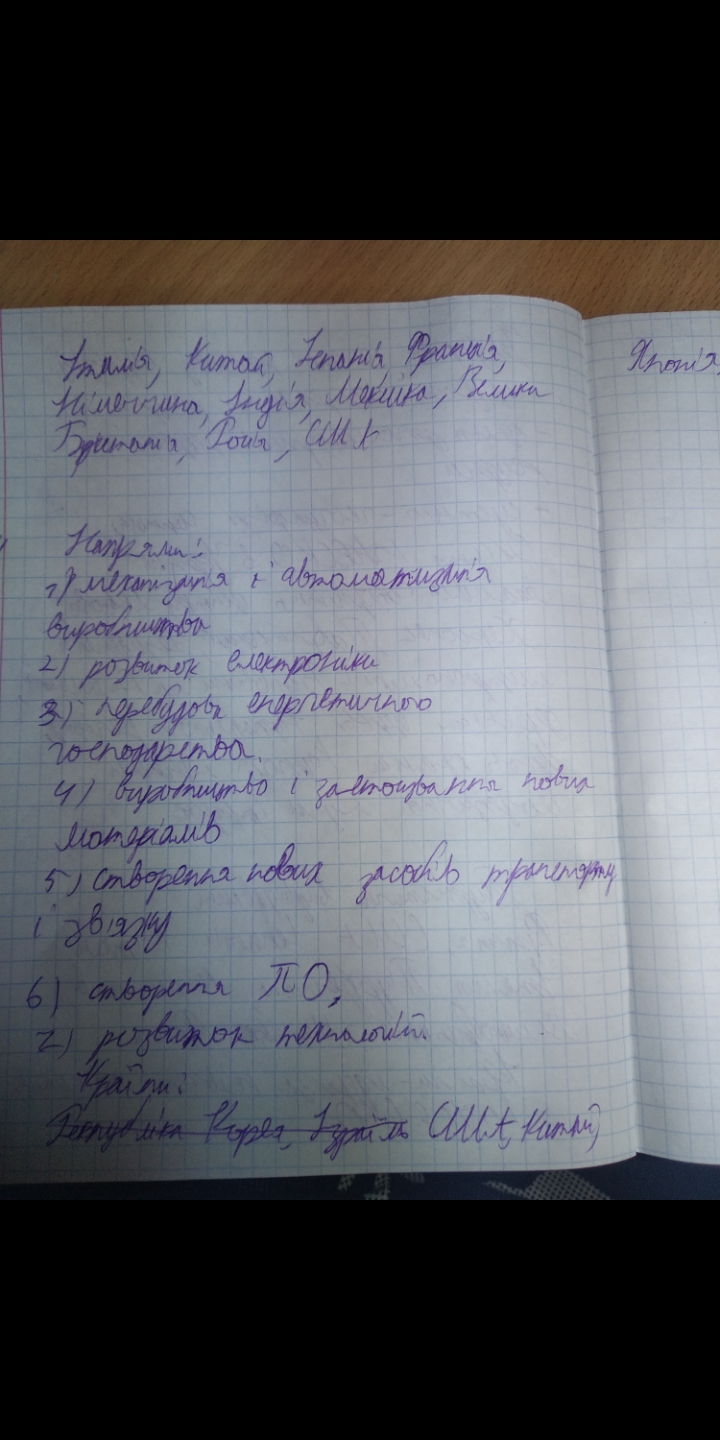 Італія, Китай, Іспанія, Франція,
Німеччина, Індія, Мексика, Велика
Британія, Росія, США
Напрями:
1) механізація і автоматизація
виробництва
2) розвиток електроніки
3) перебудова енергетичного
господарства.
4) виробництво і застосування нових
матеріалів
5) створення нових засобів транспорту
і зв'язку
6) створення ПО,
7) розвиток технологій.
Країни:
Республіка Корея, Ізраїль США, Китай,
Японія,